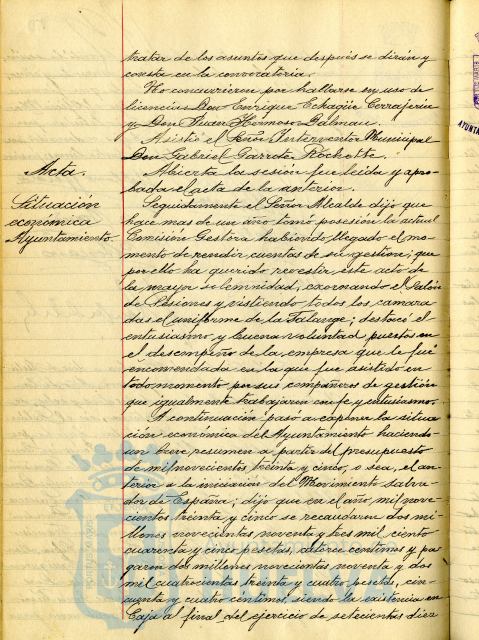 tratar de los asuntos que después se dirán y
consta en la convocatoria.
No concurrieron por hallarse en uso de
licencias Don Enrique Echagüe Cerrajería
y Don Juan Hermoso Dalmau.
Asistió el Señor Interventor Municipal
Don Gabriel Garrote Rochette.
Acta.
Abierta la sesión fue leída y apro-
bada el acta de la anterior.
Situación
económica
Ayuntamiento.
Seguidamente el Señor Alcalde dijo que
hace mas de un año tomó posesión la actual
Comisión Gestora habiendo llegado el mo-
mento de rendir cuentas de su gestión; que
por ello ha querido revestir este acto de
la mayor solemnidad, exornando el Salón
de Sesiones y vistiendo todos los camara-
das el uniforme de la Falange; destacó el
entusiasmo y buena voluntad puestos en
el desempeño de la empresa que le fué
encomendada en la que fue asistido en
todo momento por sus compañeros de gestión
que igualmente trabajaron con fe y entusiasmo.
A continuación pasó a exponer la situa-
ción económica del Ayuntamiento haciendo
un breve resumen a partir del presupuesto
de mil novecientos treinta y cinco, o sea, el an-
terior a la iniciación del Movimiento salva-
dor de España; dijo que en el año mil nove-
cientos treinta y cinco se recaudaron dos mi-
llones novecientas noventa y tres mil ciento
cuarenta y cinco pesetas, catorce centimos y pa-
garon dos millones novecientas noventa y dos
mil cuatrocientas treinta y cuatro pesetas, cin-
cuenta y cuatro céntimos, siendo la existencia en
Caja al final del ejercicio de setecientas diez